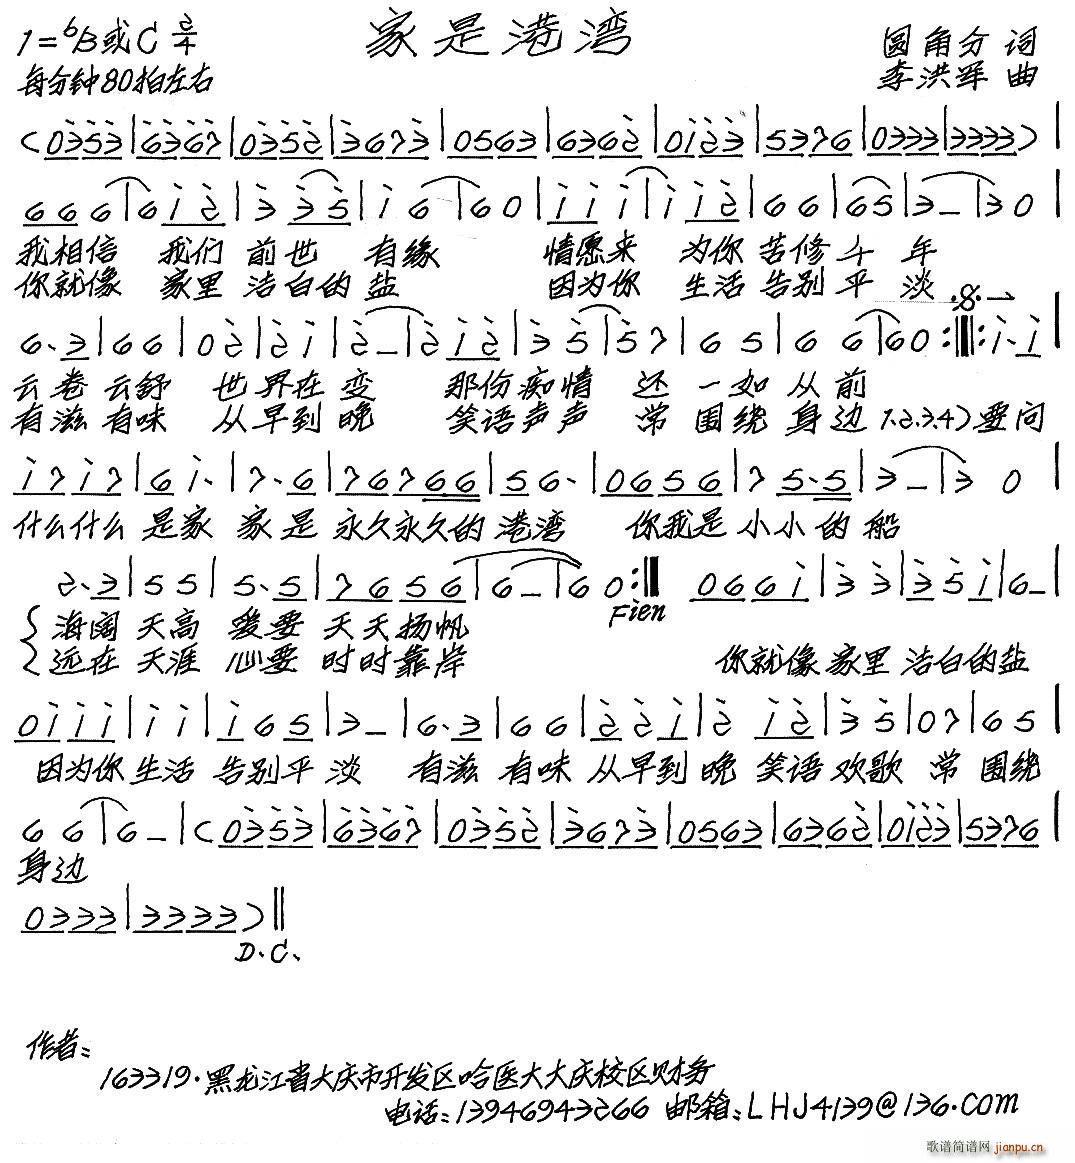 家是港湾
1=ᵇB或C 2/4
每分钟80拍左右
圆角分 词
李洪军 曲
(0353|6367|0352|3673|0563|6362|0123|5376|0333|3333)|
666|612|335|16|60|111|112|66|65|3–|30|
我相信 我们 前世 有缘 情愿来 为你 苦修 千年
你就像 家里 洁白的盐 因为你 生活 告别平淡
6·3|66|02|21|2–|212|35|57|65|6 6|60:||:1·1|
云卷 云舒 世界在变 那份痴情 还一如从前
有滋有味 从早到晚 笑语声声 常围绕身边 1.2.3.4)要问
1717|61·|7·6|76766|56·|0656|75·5|3–|30|
什么什么 是家 家是 永久永久的港湾 你我是小小的船
2·3|55|5·5|7656|6–|60:|| 0661|33|351|6–|
海阔 天高 爱要 天天扬帆
Fien
远在 天涯 心要 时时靠岸 你就像 家里 洁白的盐
0111|11|165|3–|6·3|66|221|2 12|35|07|65|
因为你 生活 告别平淡 有滋有味 从早到晚 笑语欢歌 常围绕
66|6–|(0353|6367|0352|3673|0563|6362|0123|5376|
身边
0333|3333)||
D.C.
作者:
163319·黑龙江省大庆市开发区哈医大大庆校区财务
电话:13946943266 邮箱:LHJ4139@136.com
歌谱简谱网 jianpu.cn